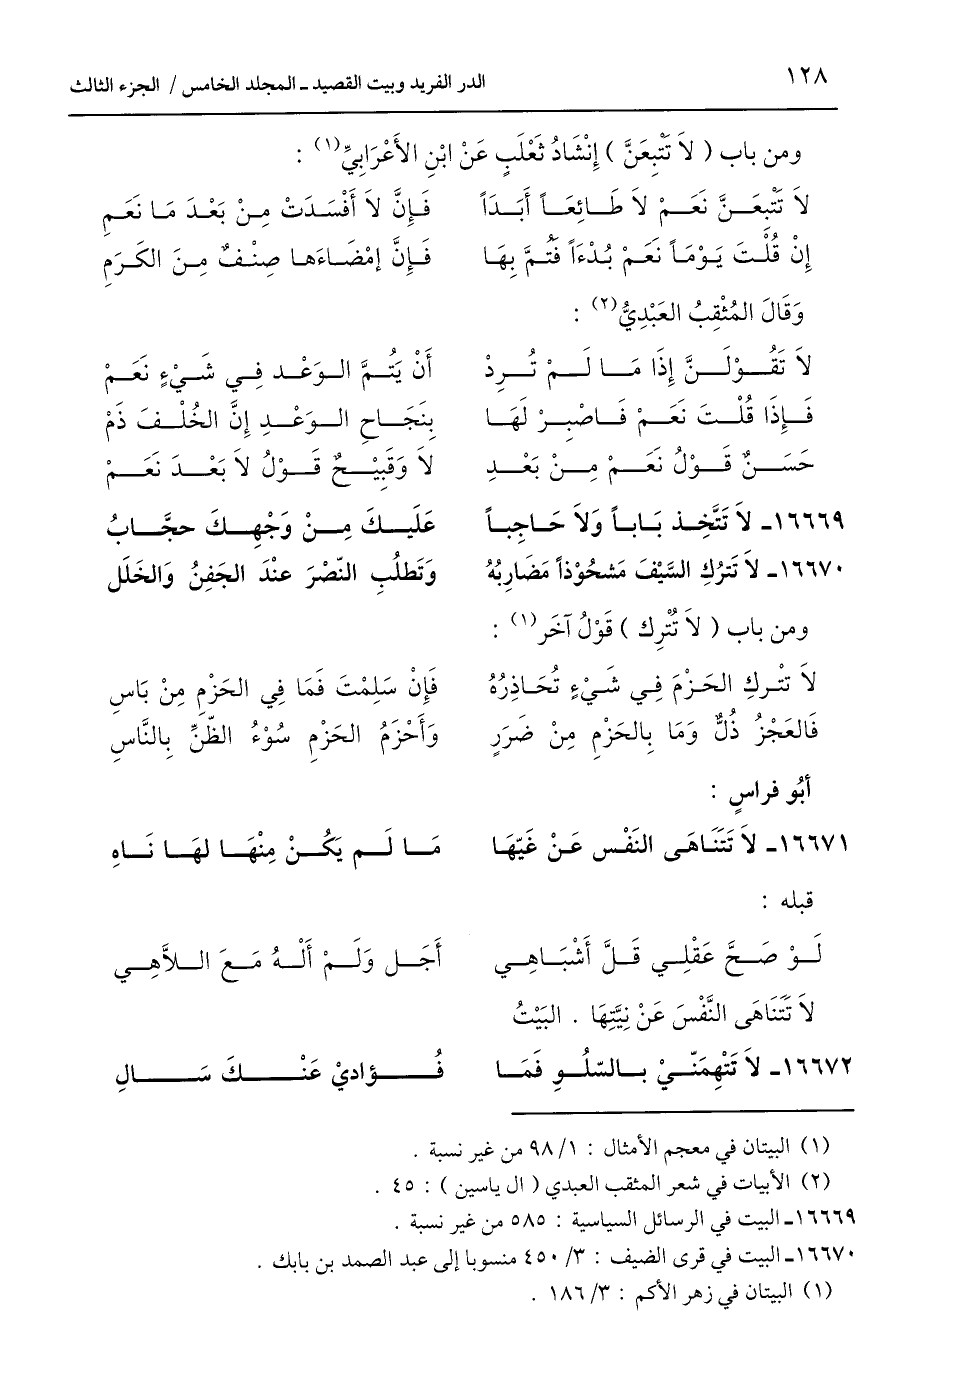 ١٢٨ الدر الفريد وبيت القصيد ـ المجلد الخامس / الجزء الثالث
ومن باب ( لاَ تَتْبِعَنَّ ) إِنْشَادُ ثَعْلَبٍ عَنْ ابْنِ الأَعْرَابِيِّ(١) :
لاَ تَتْبِعَـنَّ نَعَـمْ لاَ طَـائِعَـاً أَبَـدَاً فَـإِنَّ لاَ أَفْسَدَتْ مِـنْ بَعْـدِ مَـا نَعَـمِ
إِنْ قُلْـتَ يَـوْمَـاً نَعَـمْ بُـدْءَاً فَتُـمَّ بِهَـا فَـإِنَّ إِمْضَـاءَهـا صِنْـفٌ مِـنَ الكَـرَمِ
وَقَالَ المُثْقِبُ العَبْدِيُّ(٢) :
لاَ تَقُـوْلَـنَّ إِذَا مَـا لَـمْ تُـرِدْ أَنْ يَتُـمَّ الـوَعْـد فِـي شَـيْءٍ نَعَـمْ
فَـإِذَا قُلْـتَ نَعَـمْ فَـاصْبِـرْ لَهَـا بِنَجَـاحِ الـوَعْـدِ إِنَّ الخُلْـفَ ذَمْ
حَسَـنٌ قَـوْلُ نَعَـمْ مِـنْ بَعْـدِ لاَ وَقَبِيْـحٌ قَـوْلُ لاَ بَعْـدَ نَعَـمْ
١٦٦٦٩ـ لاَ تَتَّخِـذ بَـابـاً وَلاَ حَـاجِبـاً عَلَيـكَ مِـنْ وَجْهِـكَ حجَّـابُ
١٦٦٧٠ـ لاَ تَتْرُكِ السَّيْفَ مَشحُوْذاً مَضَارِبُهُ وَتَطلُبِ النّصْرَ عنْدَ الجَفنُ وَالخَلَل
ومن باب ( لاَ تَتْرِك ) قَوْلُ آخَر(١) :
لاَ تَتْركِ الحَـزْمَ فِـي شَـيْءٍ تُحَـاذِرُهُ فَإِنْ سَلِمْتَ فَمَا فِي الحَزْمِ مِنْ بَاسِ
فَالعَجْزُ ذُلٌّ وَمَا بِالحَزْمِ مِنْ ضَرَرٍ وَأَحْزَمُ الحَزْمِ سُوْءُ الظّنِّ بِالنَّاسِ
أبُو فراسٍ :
١٦٦٧١ـ لاَ تَتَنَاهَـى النَّفْـس عَـنْ غَيّهَـا مَـا لَـم يَكُـنْ مِنْهَـا لهَـا نَـاهِ
قبله :
لَـوْ صَـحَّ عَقْلِـي قَـلَّ أَشْبَـاهِـي أَجَـل وَلَـمْ أَلْـهُ مَـعَ الـلاَّهِـي
لاَ تَتَنَاهَى النَّفْسَ عَنْ نِيَّتِهَا . البَيْتُ
١٦٦٧٢ـ لاَ تَتْهِمَنّـيْ بِـالسّلُـوِ فَمَـا فُـؤاديْ عَنْـكَ سَـالِ
(١) البيتان في معجم الأمثال : ٩٨/١ من غير نسبة .
(٢) الأبيات في شعر المثقب العبدي ( ال ياسين ) : ٤٥ .
١٦٦٦٩ـ البيت في الرسائل السياسية : ٥٨٥ من غير نسبة .
١٦٦٧٠ـ البيت في قرى الضيف : ٣/ ٤٥٠ منسوبا إلى عبد الصمد بن بابك .
(١) البيتان في زهر الأكم : ٣/ ١٨٦ .